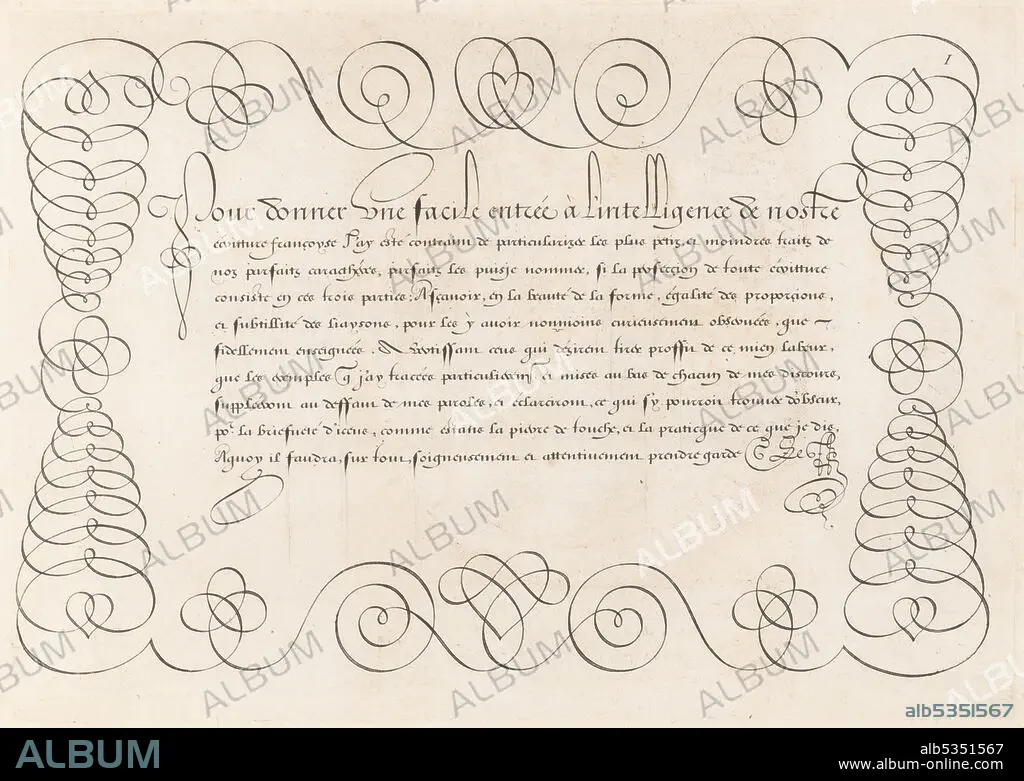 1
Pour donner Vne facile entrée à l'intelligence de nostre
écriture françoyse J'ay esté contraint de particularizer les plus petiz, et moindres traitz de
noz parfaitz caracthéres, parfaitz les puisje nommer, si la perfeccion de toute écritture
consiste en ces trois parties: Asçauoir, en la beauté de la forme, égalité des proporcions,
et subtillité des liaysons, pour les y auoir nonmoins curieusement obseruées, que
fidellement enseignées. Auertissant ceus qui dézirent tirer proffit de ce mien labeur,
que les exemples q j'ay tracées particulierem̃t et mises au bas de chacun de mes discours,
suppleeront au deffaut de mes paroles, et éclarciront, ce qui s'y pourroit trouuer d'obscur,
por la briefueté d'iceus, comme estatis la pierre de touche, et la praticque de ce que je dis,
Aquoy il faudra, sur tout, soigneusement et attentiuement prendre garde
ALBUM
alb5351567
ALBUM
alb5351567
www.album-online.com